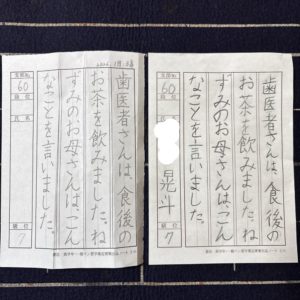 歯医者さんは、食後の
お茶を飲みました。ね
ずみのお母さんは、こん
なことを言いました。
支部No.
60
段位
氏名
級位
7
歯医者さんは、食後の
お茶を飲みました。ね
ずみのお母さんは、こん
なことを言いました。
支部No.
60
段位
氏名
晃斗
級位
7